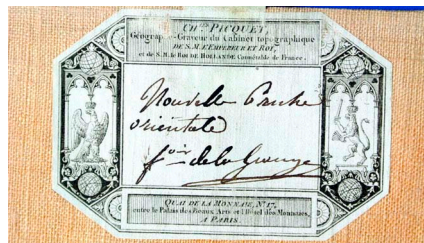 CH.les PICQUET,
Géographe-Graveur du Cabinet topographique
DE S. M. L'EMPEREUR ET ROI,
et de S. M. le ROI DE HOLLANDE Connétable de France.
Nouvelle Prusse
orientale
QUAI DE LA MONNAIE, N.º 17,
entre le Palais des Beaux Arts et l'Hôtel des Monnaies,
A PARIS.